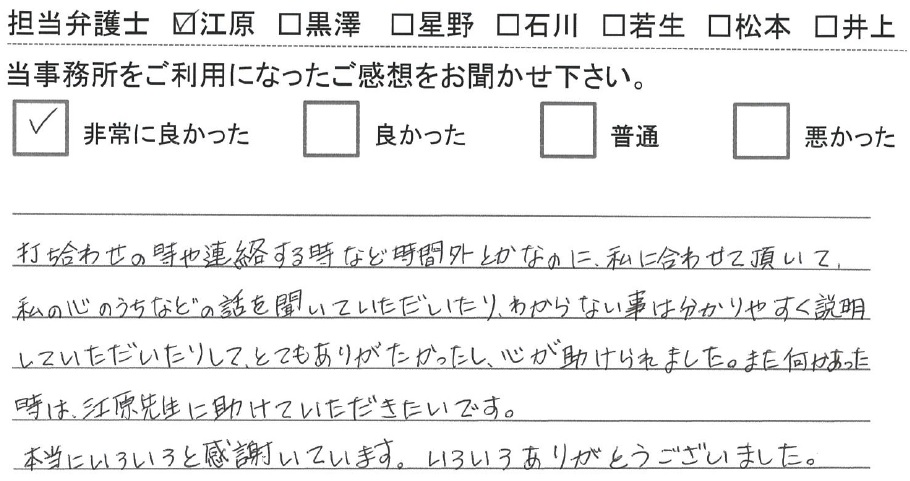 担当弁護士 ☑江原 □黒澤 □星野 □石川 □若生 □松本 □井上
当事務所をご利用になったご感想をお聞かせ下さい。
☑ 非常に良かった □ 良かった □ 普通 □ 悪かった
打ち合わせの時や連絡する時など時間外とかなのに、私に合わせて頂いて、
私の心のうちなどの話を聞いていただいたり、わからない事は分かりやすく説明
していただいたりして、とてもありがたかったし、心が助けられました。また何かあった
時は、江原先生に助けていただきたいです。
本当にいろいろと感謝いています。いろいろありがとうございました。